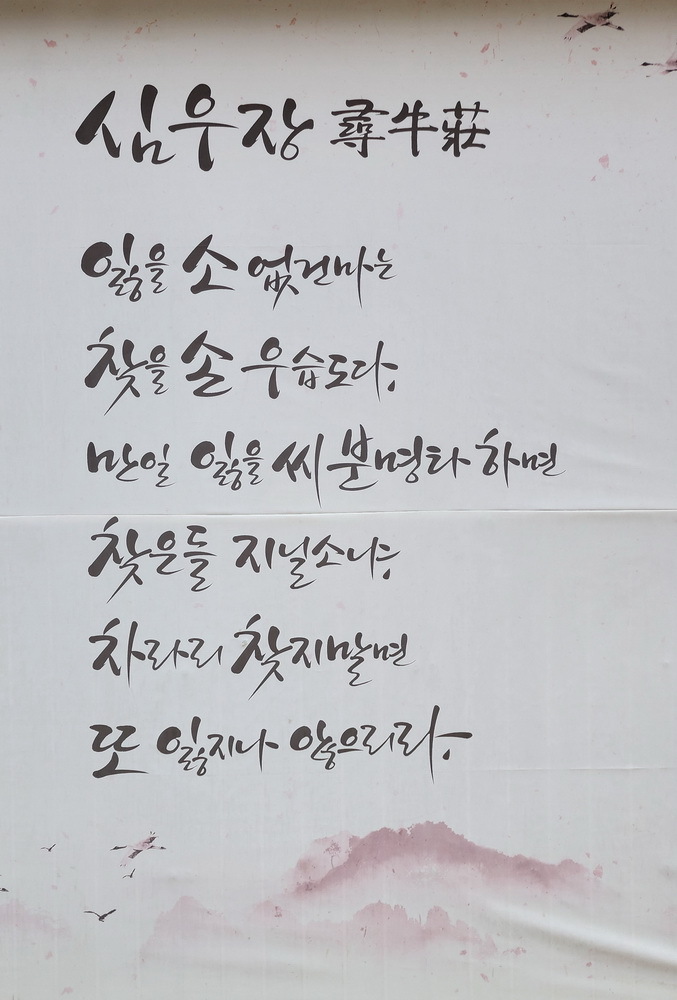 심우장 尋牛莊
잃을 소 없건마는
찾을 손 우습도다.
만일 잃을 씨 분명타 하면
찾은들 지닐소냐.
차라리 찾지 말면
또 잃지나 않으리라.